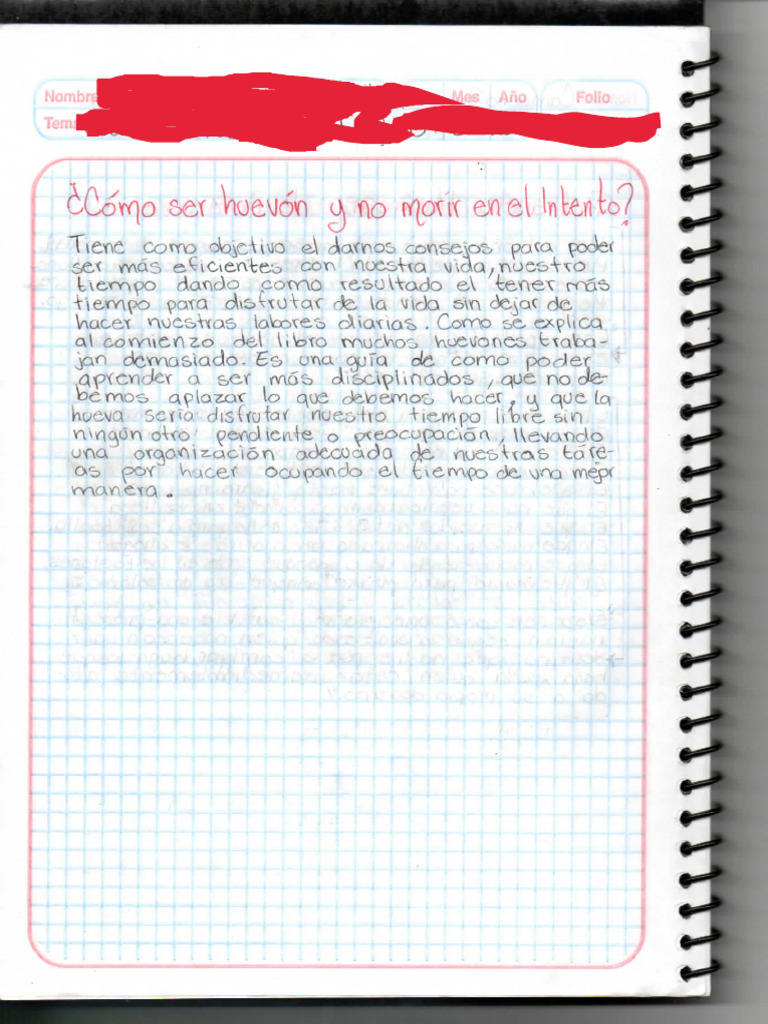 Nombre
Mes Año Folio
Tem
¿Cómo ser huevón y no morir en el Intento?
Tiene como objetivo el darnos consejos para poder
ser más eficientes con nuestra vida, nuestro
tiempo dando como resultado el tener más
tiempo para disfrutar de la vida sin dejar de
hacer nuestras labores diarias. Como se explica
al comienzo del libro muchos huevones traba-
jan demasiado. Es una guía de como poder
aprender a ser más disciplinados, que no de-
bemos aplazar lo que debemos hacer, y que la
hueva seria disfrutar nuestro tiempo libre sin
ningún otro pendiente o preocupación, llevando
una organización adecuada de nuestras táre-
as por hacer ocupando el tiempo de una mejor
manera.